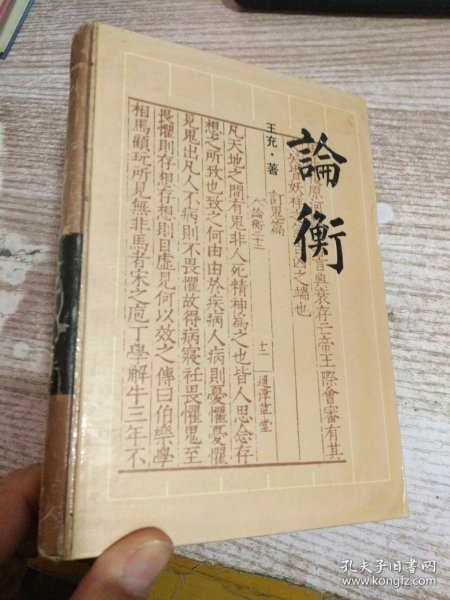 論衡
王充·著
言與衰存亡帝王際會審有其
之端也
訂鬼篇
論衡二十二
十一
通津草堂
凡天地之間有鬼非人死精神為之也皆人思念存
想之所致也致之何由由於疾病人病則憂懼憂懼
見鬼出凡人不病則不畏懼故得病寢衽畏懼鬼至
畏懼則存想存想則目虛見何以效之傳曰伯樂學
相馬顧玩所見無非馬者宋之庖丁學解牛三年不
孔夫子旧书网
www.kongfz.com